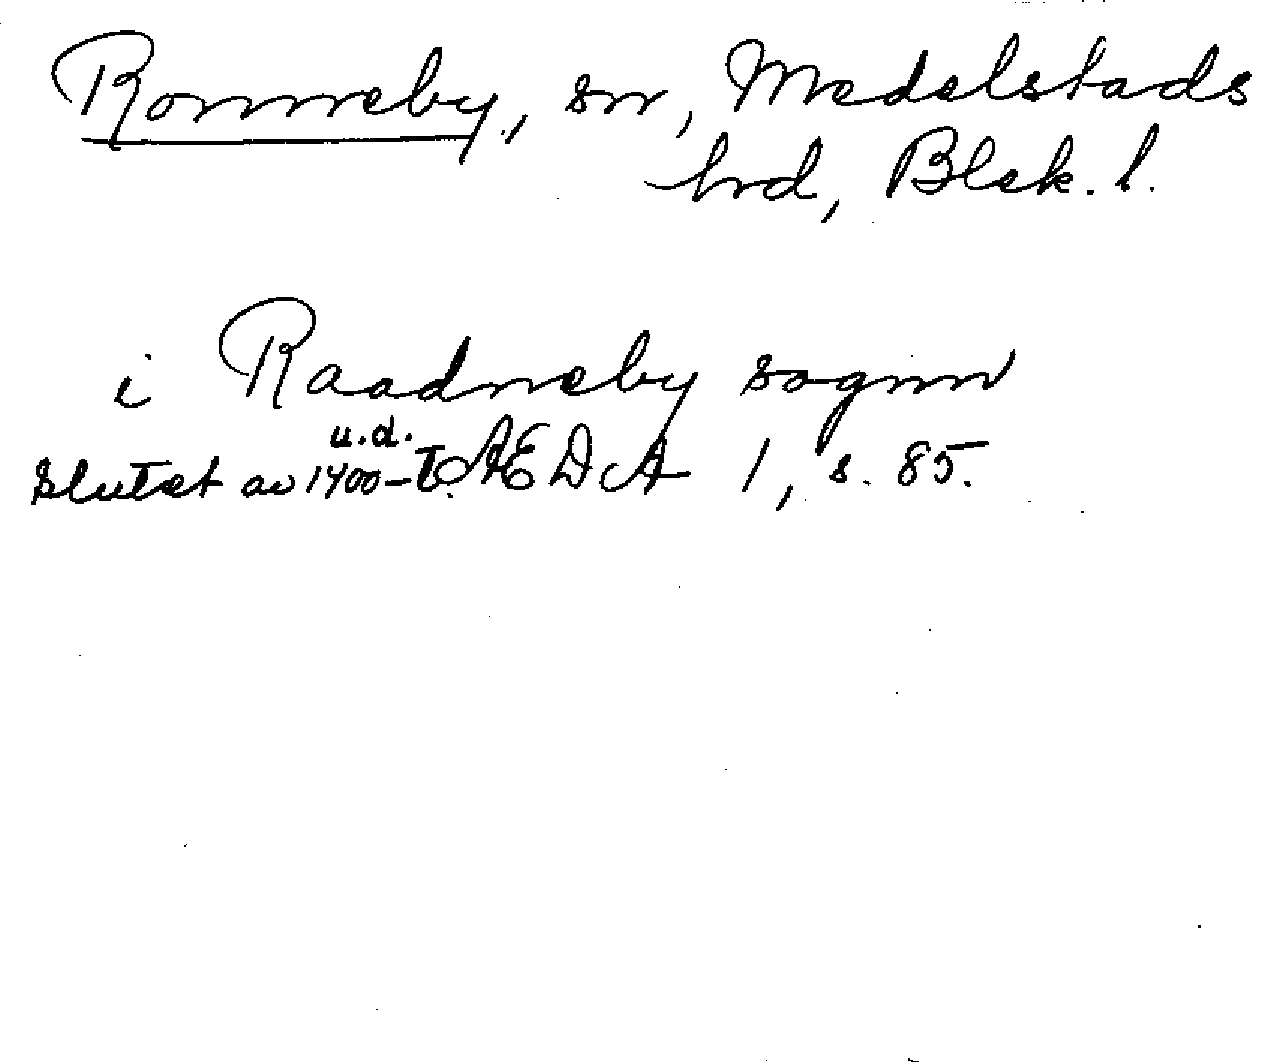 Ronneby, sn, Medelstads
hrd, Blek. l.
i Raadneby sognn
u.d.
Slutet av 1400-t. ÆDA 1, s. 85.